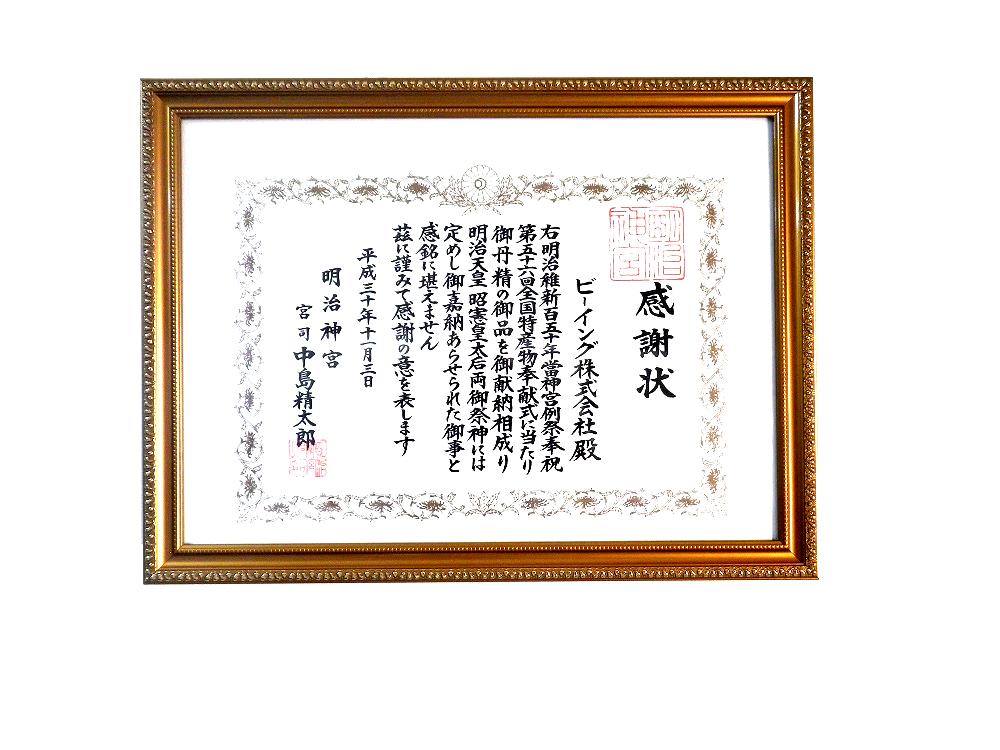 感謝状
明治神宮
ビーイング株式会社殿
右明治維新百五十年當神宮例祭奉祝
第五十六回全国特産物奉献式に当たり
御丹精の御品を御献納相成り
明治天皇昭憲皇太后両御祭神には
定めし御嘉納あらせられた御事と
感銘に堪えません
茲に謹みて感謝の意を表します
平成三十年十一月三日
明治神宮
宮司中島精太郎